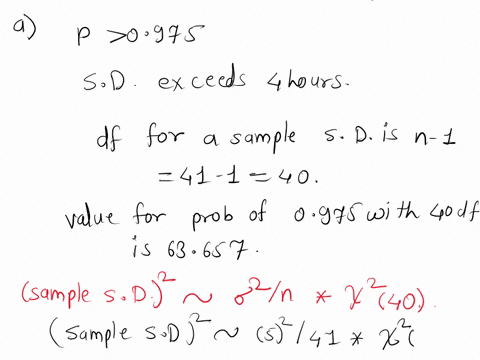 a) P > 0.975
S.D. exceeds 4 hours.
df for a sample S.D. is n-1
= 41 - 1 = 40.
value for prob of 0.975 with 40 df
is 63.657.
(sample S.D.)² ~ σ²/n * χ²(40).
(Sample S.D)² ~ (5)²/41 * χ²(